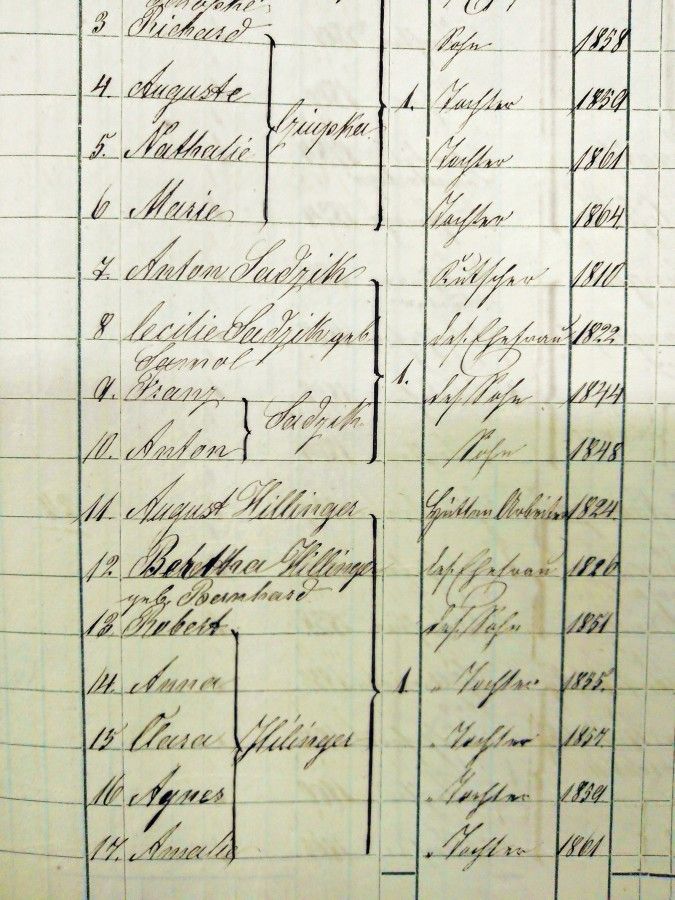 3 Richard Sohn 1858
4. Auguste 1. Tochter 1859
5. Nathalie Tochter 1861
6 Marie Tochter 1864
7. Anton Sadzik Kutscher 1810
8 Cecilie Sadzik geb des. Ehefrau 1822
9. Franz 1. des Sohn 1844
Sadzik
10. Anton Sohn 1848
11. August Hillinger Hütten Arbeiter 1824
12 Bertha Hillinger des. Ehefrau 1826
geb. Bernhard
13 Robert des. Sohn 1851
14. Anna 1. " Tochter 1855.
15 Clara Hilinger " Tochter 1857
16 Agnes " Tochter 1859
17. Amalie " Tochter 1861